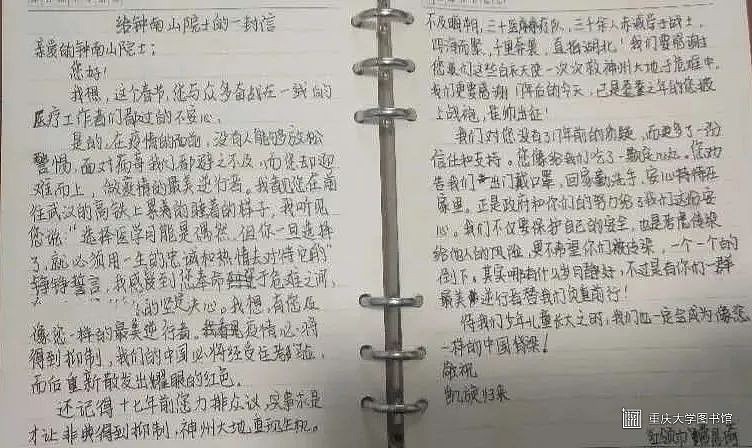 给钟南山院士的一封信
亲爱的钟南山院士：
您好！
我想，这个春节，您与众多奋战在一线的
医疗工作者们都过的不安心。
是的，在疫情的面前，没有人能够放松
警惕，面对病毒我们都避之不及，而您却迎
难而上，做疫情的最美逆行者。我看见您在前
往武汉的高铁上累着的睡着的样子，我听见
您说："选择医学可能是偶然，但你一旦选择
了，就必须用一生的忠诚和热情去对待它的"
铮铮誓言，我感受到您奉命于危难之间，
的坚定决心。我想，有您及
像您一样的最美逆行者。我看见疫情必将
得到抑制，我们的中国必将经受住考验，
而后重新散发出耀眼的红色。
还记得十七年前您力排众议，实事求是
才让非典得到抑制，神州大地重现生机。
不及明朔，三十医疗队，三千军人赤诚战士，
四海而聚，千里奔袭，直指湖北！我们要感谢
您及们这些白衣天使一次次救神州大地于危难中。
我们更要感谢17年后的今天，已是耄耋之年的您披
上战袍，挂帅出征！
我们对您没有了17年前的质疑，而更多了一份
信任和支持。您像给我们吃了一颗定心丸。您劝
告我们出门戴口罩，回家勤洗手，安心待在
家里。正是政府和你们的努力给了我们这份安
心。我们不仅要保护自己的安全，也是考虑传染
给他人的风险，更不希望你们被传染，一个一个的
倒下。其实哪有什么岁月静好，不过是有你们一群
最美逆行者替我们负重前行！
待我们少年儿童长大之时，我们也一定会成为像您
一样的中国脊梁！
敬祝
凯旋归来
红领巾
重庆大学图书馆